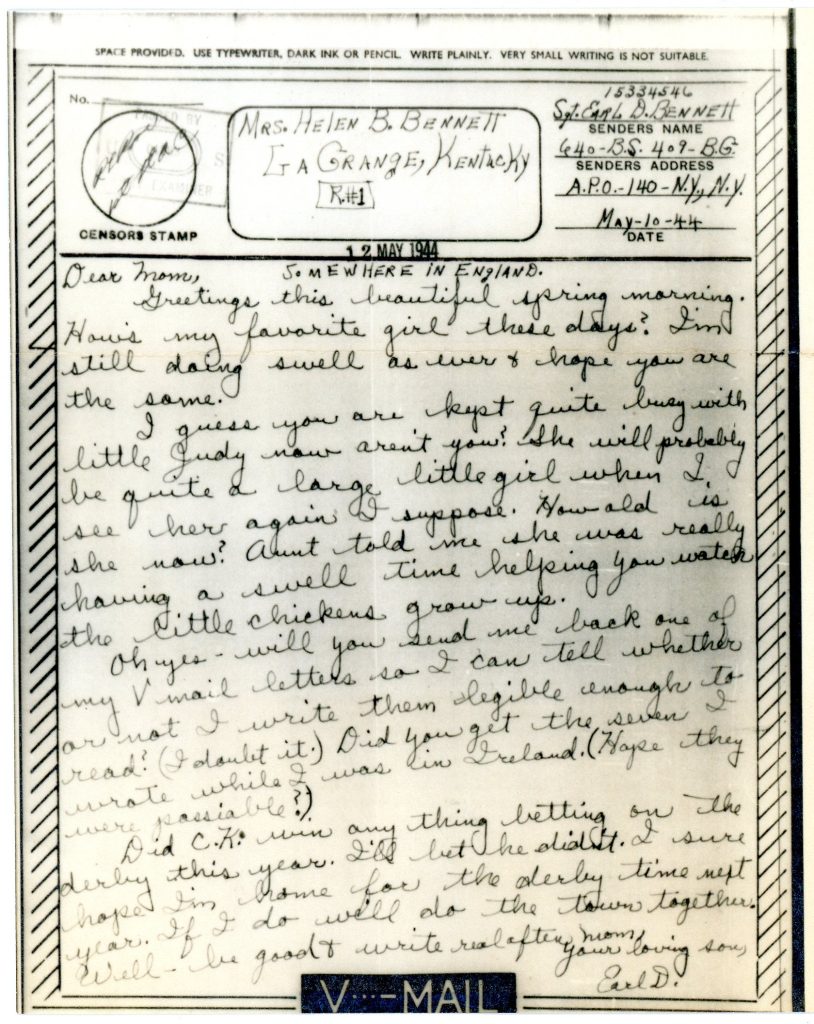 SPACE PROVIDED. USE TYPEWRITER, DARK INK OR PENCIL. WRITE PLAINLY. VERY SMALL WRITING IS NOT SUITABLE.
No.
PASSED BY
EXAMINER
CENSORS STAMP
MRS. HELEN B. BENNETT
LA GRANGE, KENTUCKY
R.#1
15334546
Sgt. EARL D. BENNETT
SENDERS NAME
640-B.S. 409-B.G.
SENDERS ADDRESS
A.P.O.-140-N.Y., N.Y.
MAY-10-44
DATE
12 MAY 1944
SOMEWHERE IN ENGLAND.
Dear Mom,
Greetings this beautiful spring morning.
How's my favorite girl these days? I'm
still doing swell as ever & hope you are
the same.
I guess you are kept quite busy with
little Judy now aren't you? She will probably
be quite a large little girl when I
see her again I suppose. How old is
she now? Aunt told me she was really
having a swell time helping you watch
the little chickens grow up.
Oh yes - will you send me back one of
my V mail letters so I can tell whether
or not I write them legible enough to
read? (I doubt it.) Did you get the seven I
wrote while I was in Ireland. (Hope they
were passiable?)
Did C.K. win any thing betting on the
derby this year. I'll bet he didn't. I sure
hope I'm home for the derby time next
year. If I do we'll do the town together.
Well - be good & write real often, mom,
your loving son,
Earl D.
V···-MAIL